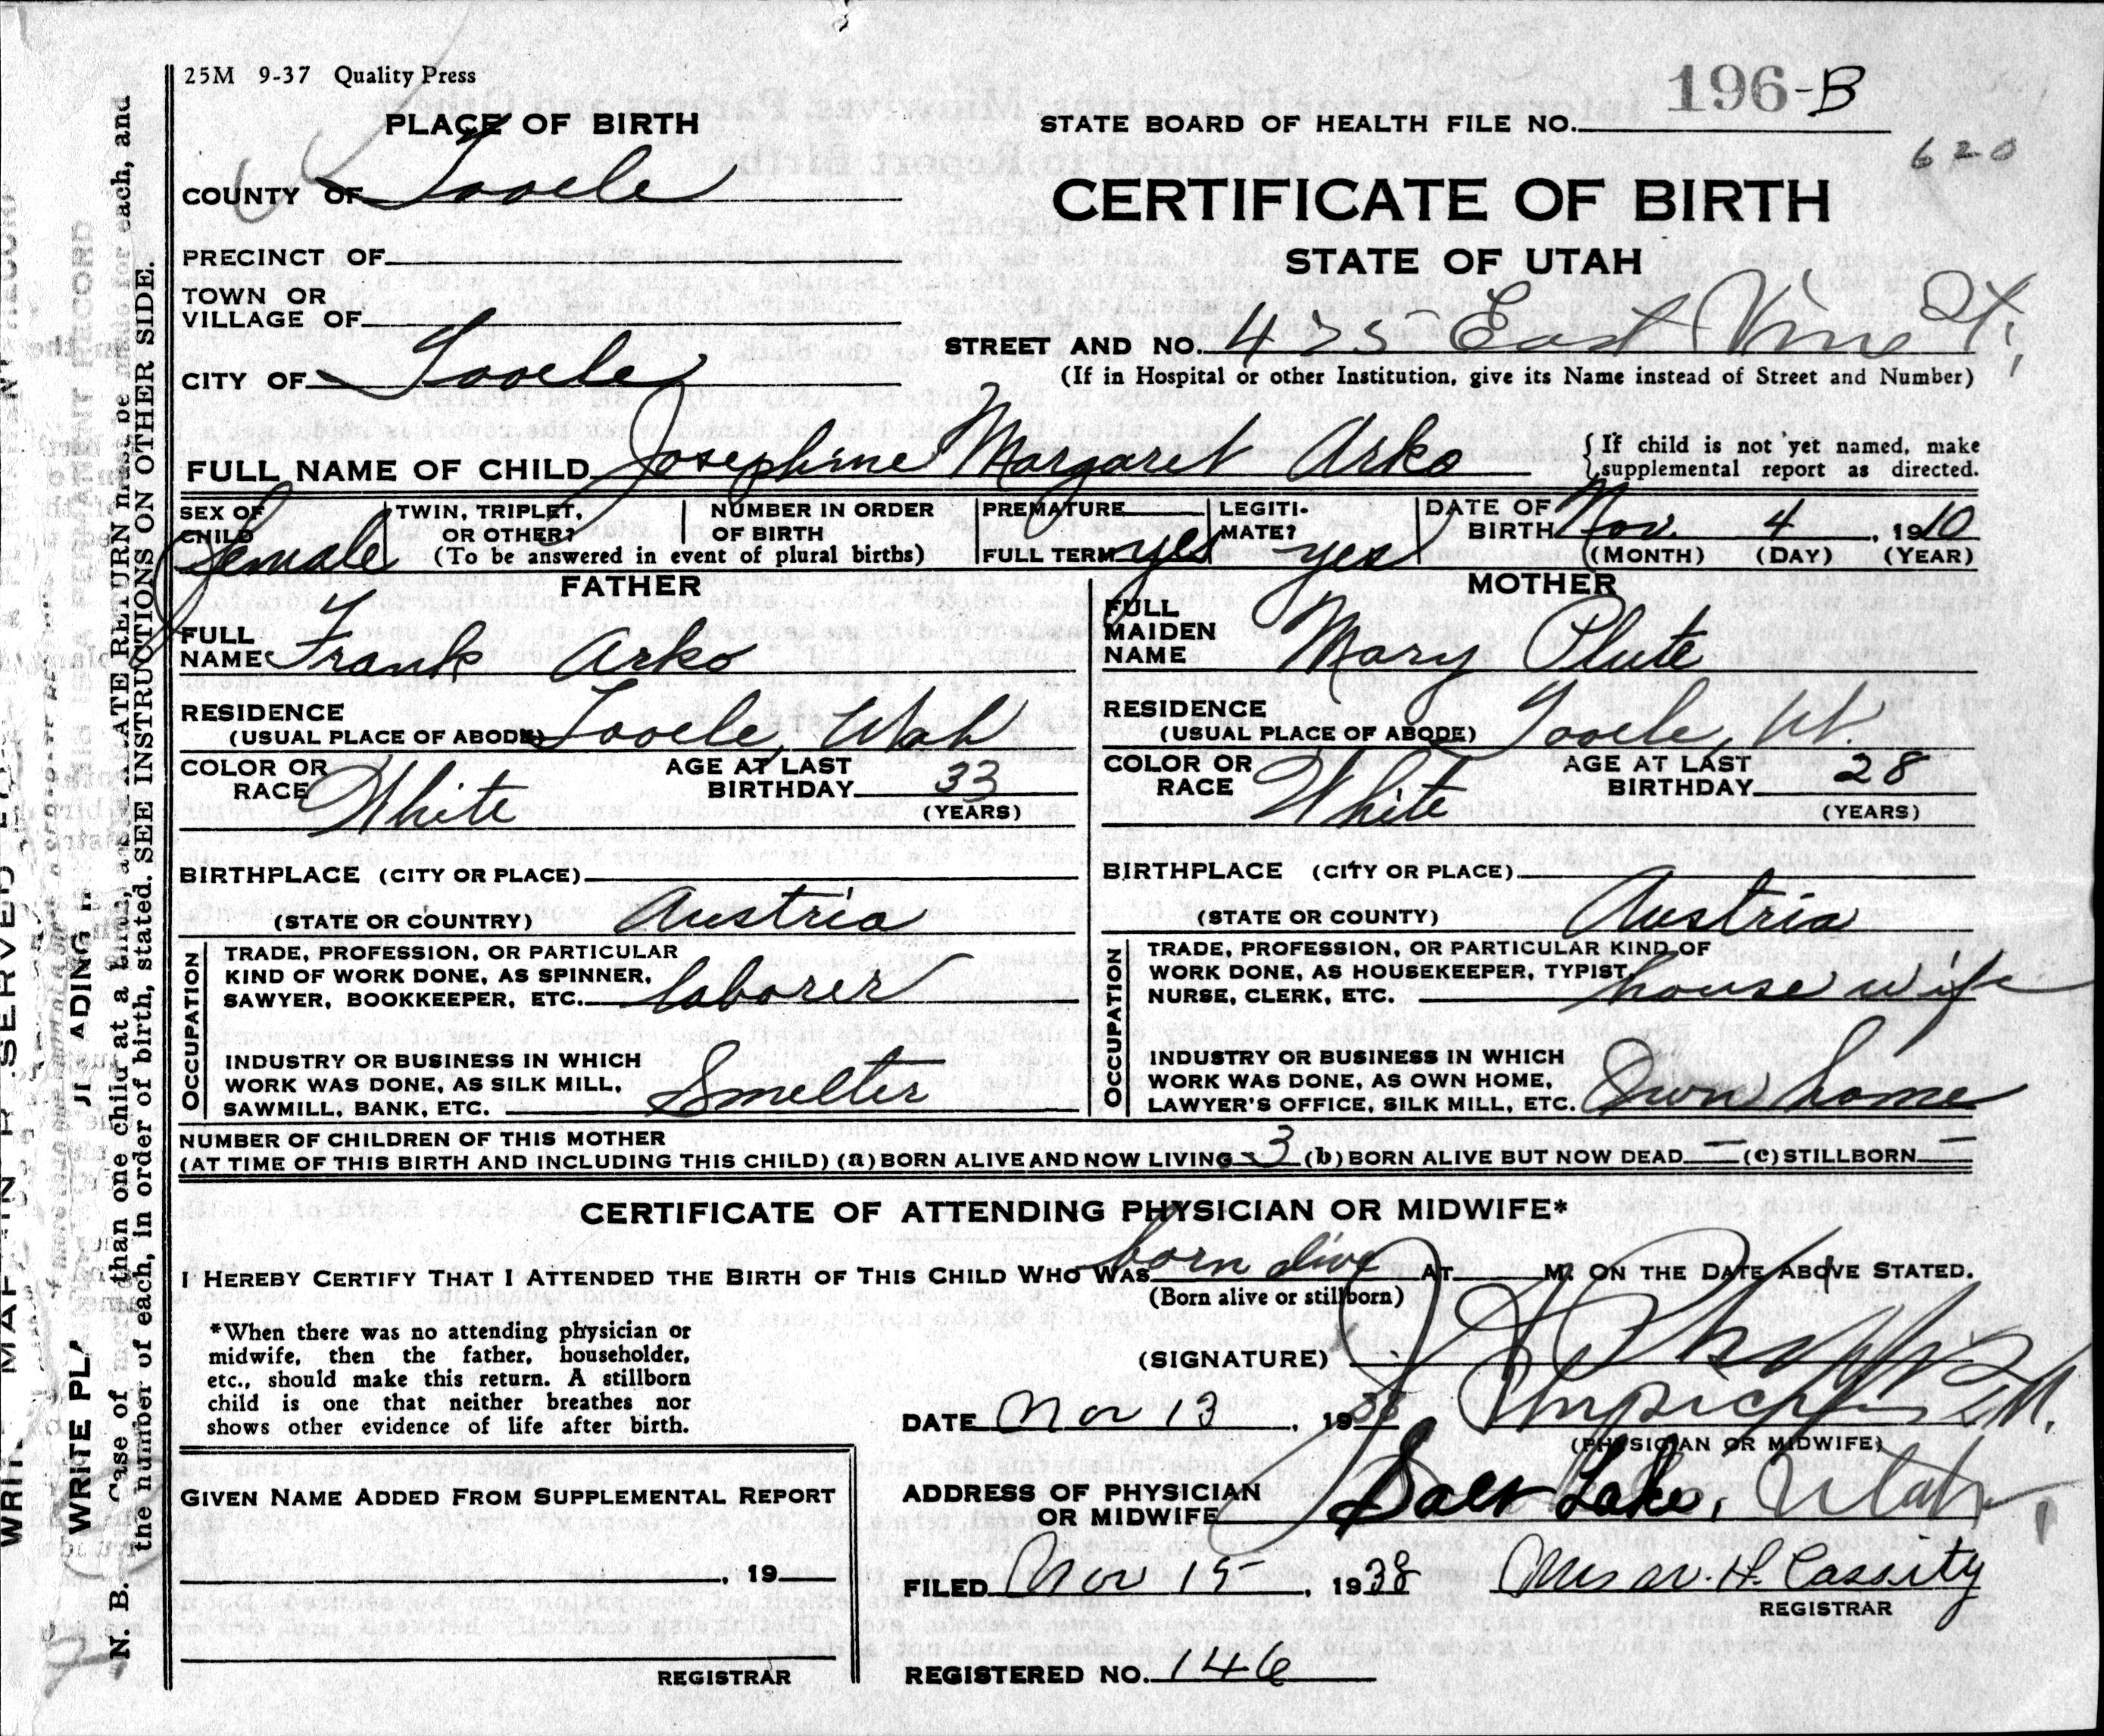 25M 9-37 Quality Press
196-B
620
PLACE OF BIRTH
STATE BOARD OF HEALTH FILE NO.
COUNTY OF Tooele
CERTIFICATE OF BIRTH
STATE OF UTAH
PRECINCT OF
TOWN OR
VILLAGE OF
STREET AND NO. 435 East Vine St.,
(If in Hospital or other Institution, give its Name instead of Street and Number)
CITY OF Tooele
FULL NAME OF CHILD Josephine Margaret Arko
{If child is not yet named, make
supplemental report as directed.
SEX OF
CHILD female
TWIN, TRIPLET,
OR OTHER?
NUMBER IN ORDER
OF BIRTH
(To be answered in event of plural births)
PREMATURE
FULL TERM yes
LEGITI-
MATE? yes
DATE OF
BIRTH Nov. 4, 1910
(MONTH) (DAY) (YEAR)
FATHER
FULL
NAME Frank Arko
RESIDENCE
(USUAL PLACE OF ABODE) Tooele, Utah
COLOR OR
RACE White
AGE AT LAST
BIRTHDAY 33
(YEARS)
BIRTHPLACE (CITY OR PLACE)
(STATE OR COUNTRY) Austria
OCCUPATION
TRADE, PROFESSION, OR PARTICULAR
KIND OF WORK DONE, AS SPINNER,
SAWYER, BOOKKEEPER, ETC. laborer
INDUSTRY OR BUSINESS IN WHICH
WORK WAS DONE, AS SILK MILL,
SAWMILL, BANK, ETC. Smelter
MOTHER
FULL
MAIDEN
NAME Mary Plute
RESIDENCE
(USUAL PLACE OF ABODE) Tooele, Ut.
COLOR OR
RACE White
AGE AT LAST
BIRTHDAY 28
(YEARS)
BIRTHPLACE (CITY OR PLACE)
(STATE OR COUNTY) Austria
OCCUPATION
TRADE, PROFESSION, OR PARTICULAR KIND OF
WORK DONE, AS HOUSEKEEPER, TYPIST,
NURSE, CLERK, ETC. house wife
INDUSTRY OR BUSINESS IN WHICH
WORK WAS DONE, AS OWN HOME,
LAWYER'S OFFICE, SILK MILL, ETC. Own home
NUMBER OF CHILDREN OF THIS MOTHER
(AT TIME OF THIS BIRTH AND INCLUDING THIS CHILD) (a) BORN ALIVE AND NOW LIVING 3 (b) BORN ALIVE BUT NOW DEAD — (c) STILLBORN —
CERTIFICATE OF ATTENDING PHYSICIAN OR MIDWIFE*
I HEREBY CERTIFY THAT I ATTENDED THE BIRTH OF THIS CHILD WHO WAS born alive AT M. ON THE DATE ABOVE STATED.
(Born alive or stillborn)
*When there was no attending physician or
midwife, then the father, householder,
etc., should make this return. A stillborn
child is one that neither breathes nor
shows other evidence of life after birth.
(SIGNATURE)
DATE Nov 13, 1938
(PHYSICIAN OR MIDWIFE)
ADDRESS OF PHYSICIAN
OR MIDWIFE Salt Lake, Utah
FILED Nov 15, 1938 Mrs W. H. Cassity
REGISTRAR
REGISTERED NO. 146
GIVEN NAME ADDED FROM SUPPLEMENTAL REPORT
, 19
REGISTRAR
the number of each, in order of birth, stated. SEE INSTRUCTIONS ON OTHER SIDE.